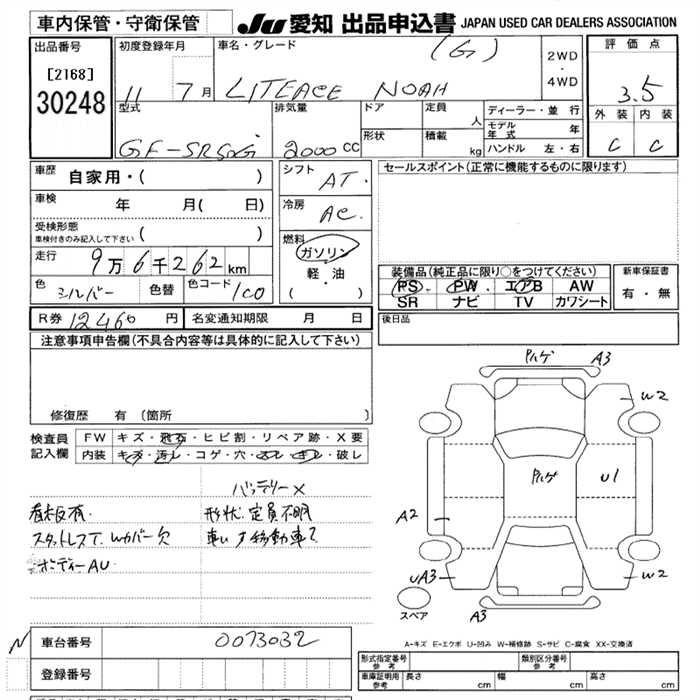 車内保管・守衛保管 JU 愛知 出品申込書 JAPAN USED CAR DEALERS ASSOCIATION
出品番号 [2168] 30248
初度登録年月 11 7月
車名・グレード LITEACE NOAH (G) 2WD・4WD
評価点 3.5
外装 内装 C C
型式 排気量 2000cc
ドア 定員 人 形状 積載 kg
ディーラー・並行
モデル年式 年
ハンドル 左・右
車歴 自家用・( )
シフト AT.
セールスポイント(正常に機能するものに限ります)
車検 年 月( 日)
冷房 AC.
受検形態 車検付きのみ記入して下さい ( )
燃料 ガソリン 軽・油 ( )
走行 9万6千262km
色 シルバー 色替 色コード 1C0
装備品(純正品に限り○をつけてください) 新車保証書
PS PW エアB AW 有・無
SR ナビ TV カワシート
R券 12460円 名変通知期限 月 日
後日品
注意事項申告欄(不具合内容等は具体的に記入して下さい)
修復歴 有(箇所
検査員記入欄 FW キズ・飛石・ヒビ割・リペア跡・X要
内装 キズ・汚レ・コゲ・穴・スレ・キレ・破レ
バッテリーX
看板有. 形状.定員不明
スタットレスT. Wカバー欠 車いす移動車?
ボディーAU
Pハゲ A3
W2
Pハゲ U1
A2
UA3 W2
スペア A3
A-キズ E-エクボ U-凹み W-補修跡 S-サビ C-腐食 XX-交換済
N 車台番号 0073032
登録番号
形式指定番号 参考 類別区分番号 参考
車庫証明用 参考 長さ cm 幅 cm 高さ cm